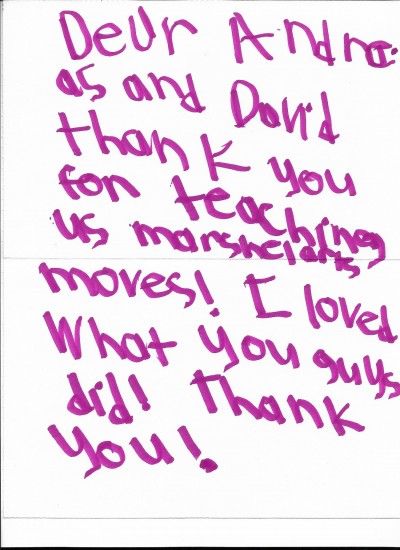 Deur Andre
as and David
thank you
for teaching
us marsheldts
moves! I loved
What you guys
did! Thank
You!